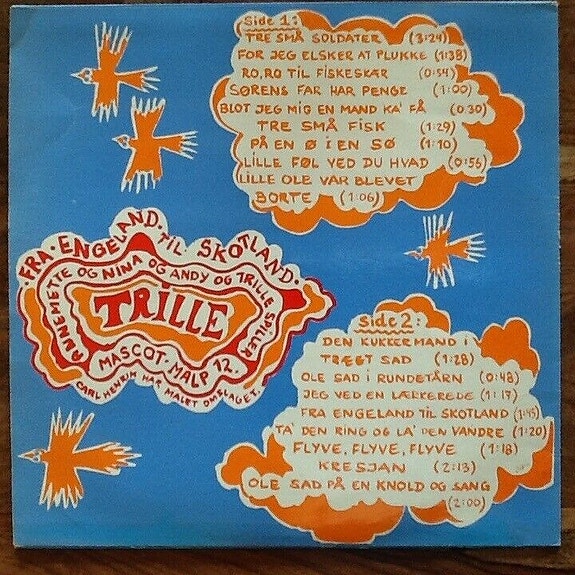 Side 1:
TRE SMÅ SOLDATER (3:24)
FOR JEG ELSKER AT PLUKKE (1:38)
RO, RO TIL FISKESKÆR (0:54)
SØRENS FAR HAR PENGE (1:00)
BLOT JEG MIG EN MAND KA' FÅ (0:30)
TRE SMÅ FISK (1:29)
PÅ EN Ø I EN SØ (1:10)
LILLE FØL VED DU HVAD (0:56)
LILLE OLE VAR BLEVET
BORTE (1:06)
FRA · ENGELAND · TIL SKOTLAND ·
ANNEMETTE OG NINA OG ANDY OG TRILLE SPILLER
TRILLE
MASCOT · MALP 12.
CARL HENRIK HAR MALET OMSLAGET.
Side 2:
DEN KUKKERMAND I
TRÆET SAD (1:28)
OLE SAD I RUNDETÅRN (0:48)
JEG VED EN LÆRKEREDE (1:17)
FRA ENGELAND TIL SKOTLAND (1:45)
TA' DEN RING OG LA' DEN VANDRE (1:20)
FLYVE, FLYVE, FLYVE (1:18)
KRESJAN (2:13)
OLE SAD PÅ EN KNOLD OG SANG
(2:00)